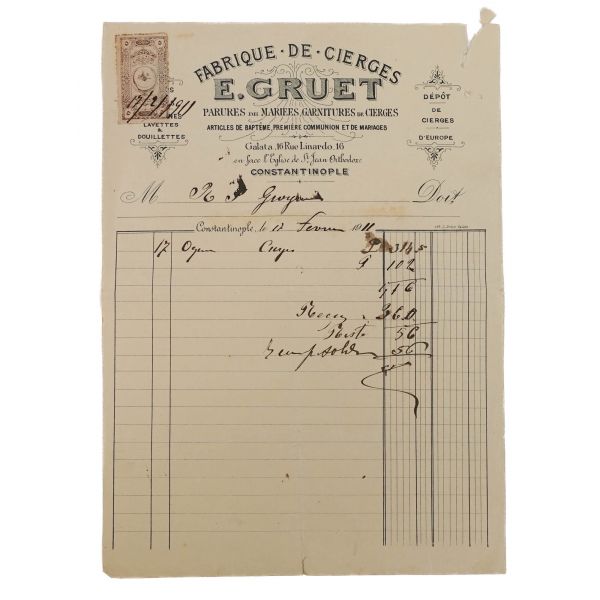 FABRIQUE · DE · CIERGES
E. GRUET
PARURES POUR MARIÉES, GARNITURES DE CIERGES
ARTICLES DE BAPTÊME, PREMIÈRE COMMUNION ET DE MARIAGES
Galata, 16 Rue Linardo, 16
en face l'Église de St Jean Orthodoxe
CONSTANTINOPLE
LAVETTES
&
DOUILLETTES
DÉPÔT
DE
CIERGES
D'EUROPE
17/2/1911
M Doit
Constantinople, le 17 Fevrier 1911
17 Cierges 314
102
416
360
Reste 56
56